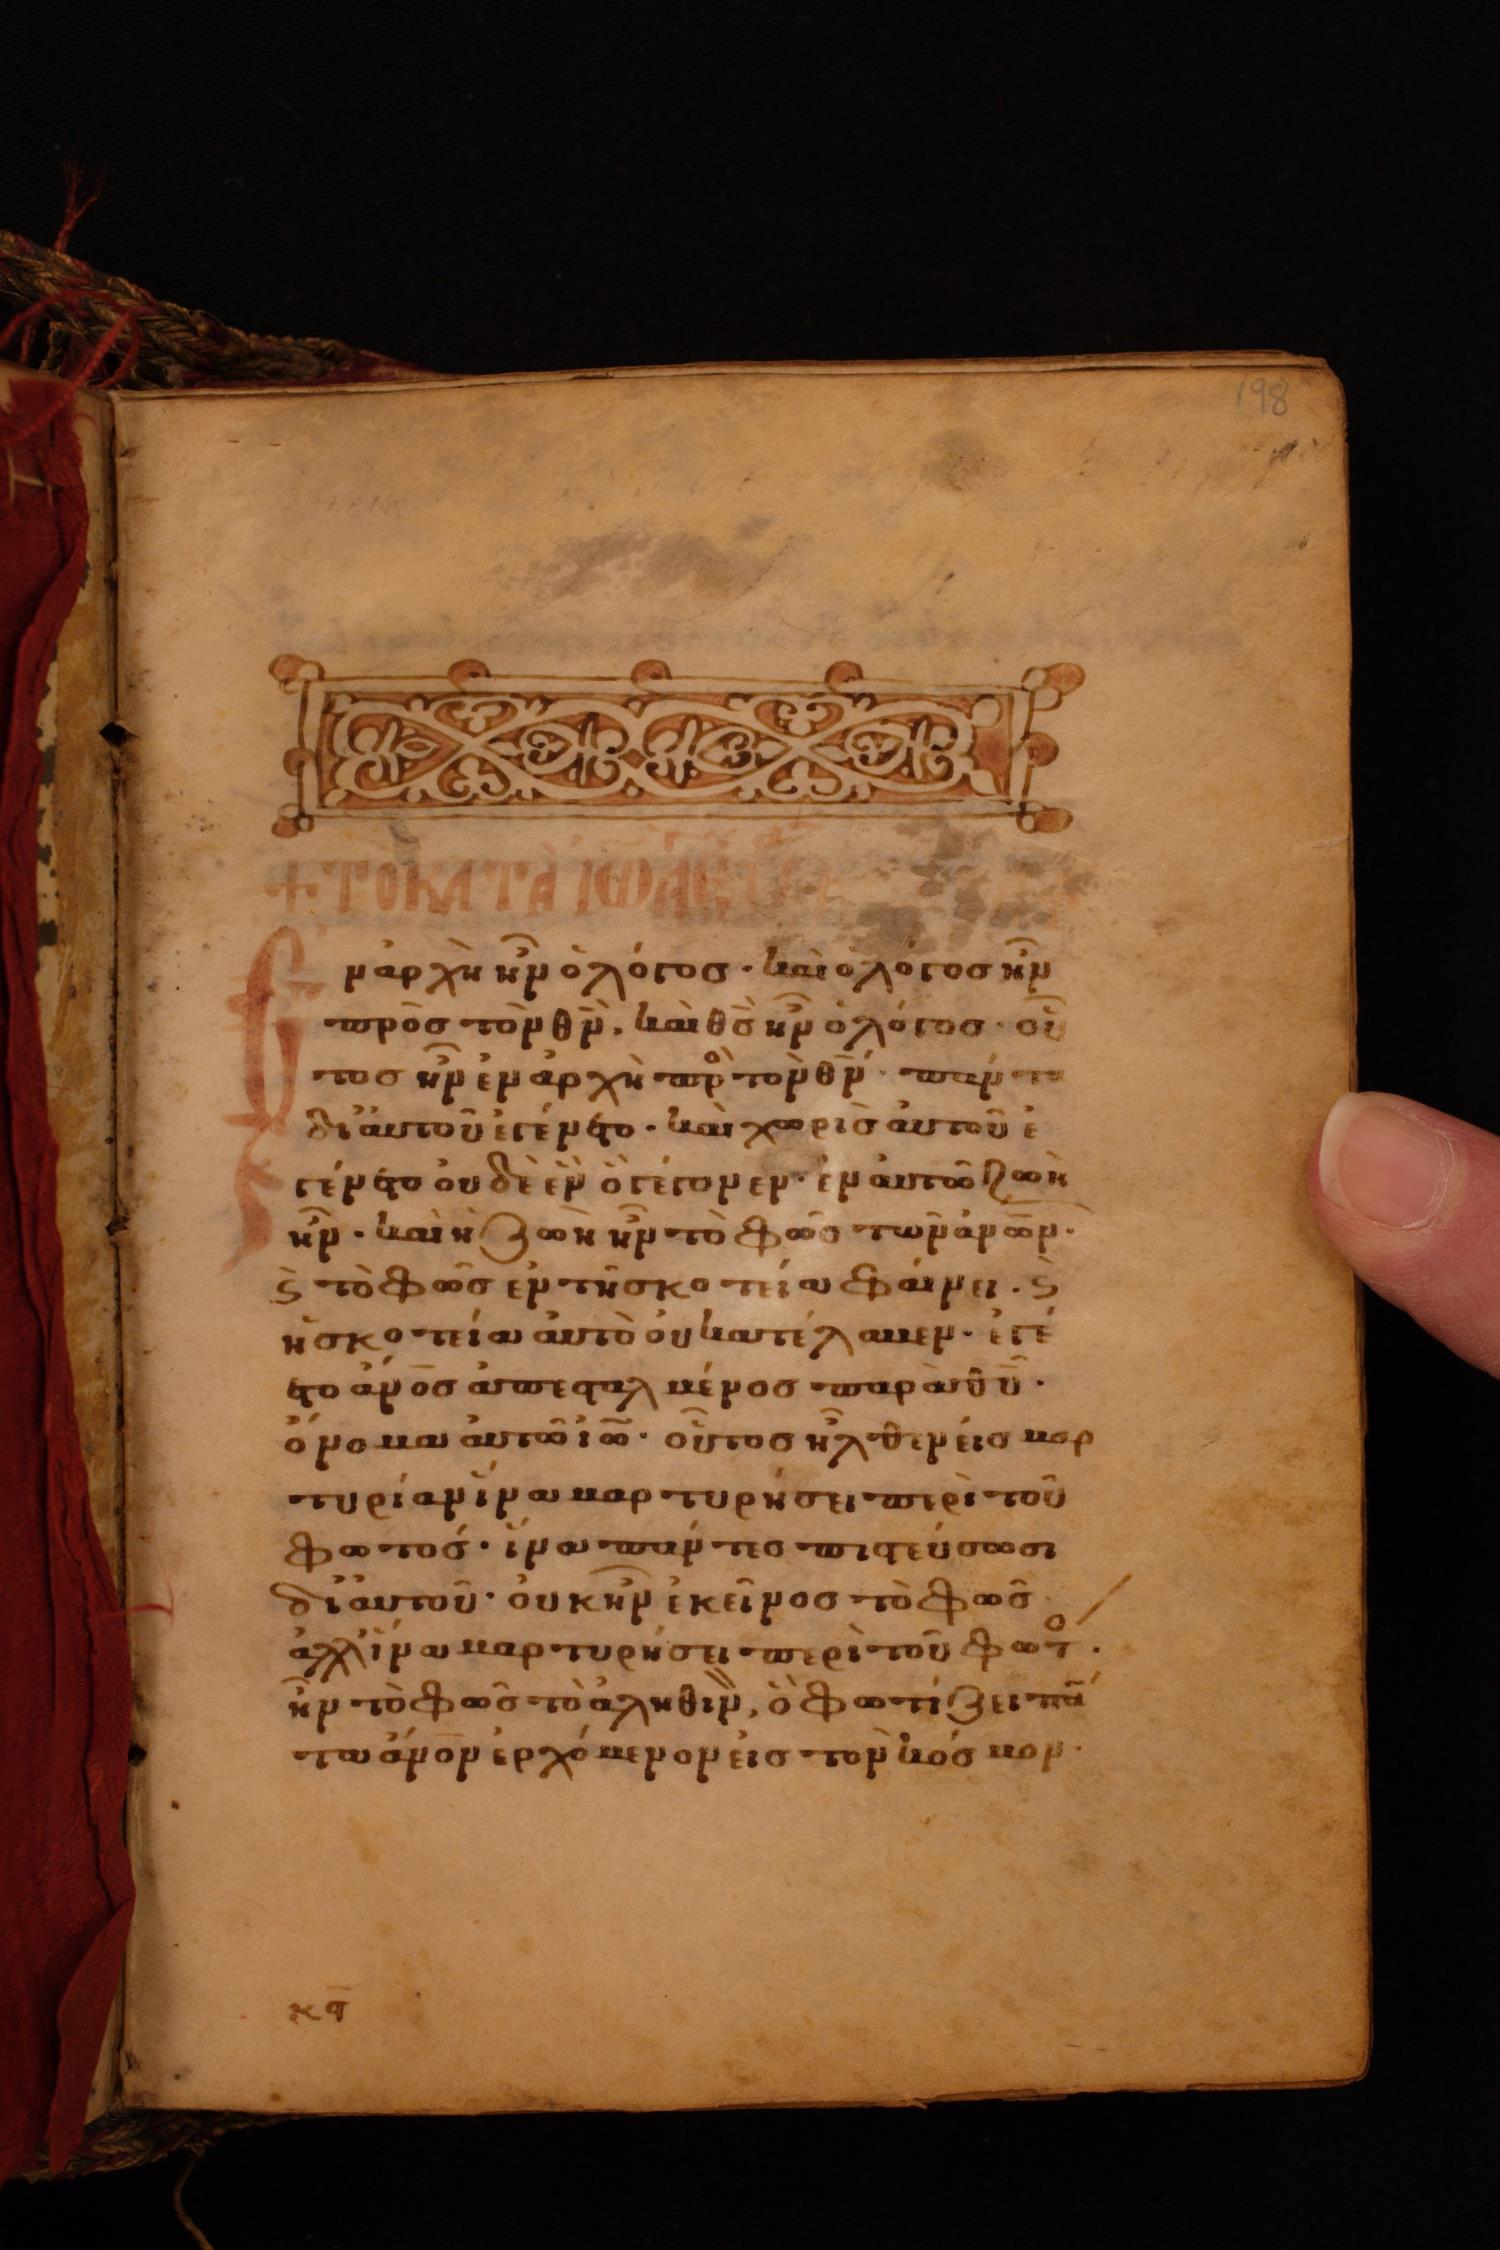 198
+ ΤΟ ΚΑΤΑ ΙΩ
Ἐν ἀρχὴ ἦν ὁ λόγος · καὶ ὁ λόγος ἦν
πρὸς τὸν θν̄, καὶ θς̄ ἦν ὁ λόγος · οὗ
τος ἦν ἐν ἀρχὴ πρὸ τὸν θν̄ · πάντα
δι ἀυτοῦ ἐγένετο · καὶ χωρὶς ἀυτοῦ ἐ
γένετο ὀυδὲ ἓν ὃ γέγονεν · ἐν ἀυτῶ ζωὴ
ἦν · καὶ ἡ ζωὴ ἦν τὸ φῶς τῶν ἀνω̅ν ·
ϛ̀ τὸ φῶς ἐν τῆ σκοτεία φάινει · ϛ̀
ἡ σκοτεία ἀυτὸ ὀυ κατέλαβεν · ἐγέ
νετο ἄνο̅ς ἀπεσταλμένος παρὰ θῡ ·
ὄνομα ἀυτῶ ἰω̅ · οὗτος ἦλθεν ἐις μαρ
τυρίαν ἵνα μαρτυρήσει περὶ τοῦ
φωτός · ἵνα πάντες πιστεύσωσι
δι ἀυτοῦ · ὀυκ ἦν ἐκεῖνος τὸ φῶς
ἀλλ ἵνα μαρτυρήσει περὶ τοῦ φωτο ·
ἦν τὸ φῶς τὸ ἀληθινὸν, ὃ φωτίζει πά
τα ἄνο̅ν ἐρχόμενον ἐις τὸν κόσμον ·